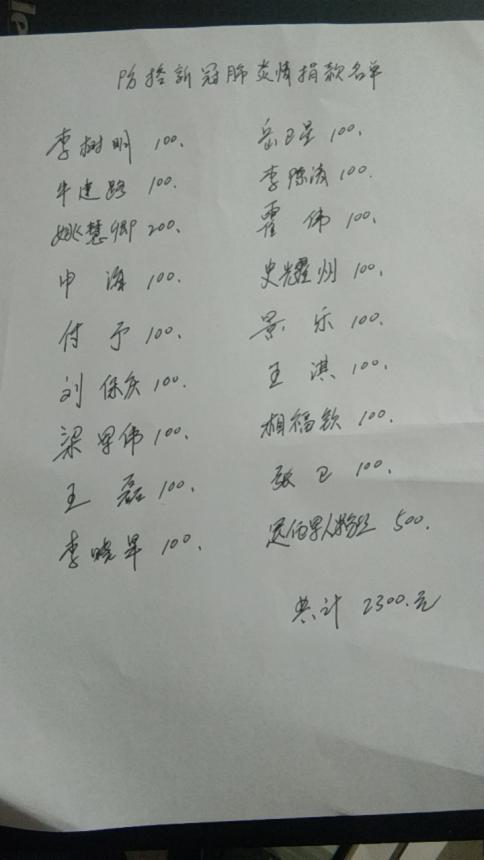 防控新冠肺炎情捐款名单
李树明 100.
牛建路 100.
姚慧卿 200.
申海 100.
付予 100.
刘保庆 100.
梁军伟 100.
王磊 100.
李晓军 100.
岳卫星 100.
李 100.
霍伟 100.
史耀州 100.
景乐 100.
王淇 100.
相福钦 100.
张卫 100.
退伍军人 500.
共计 2300.元